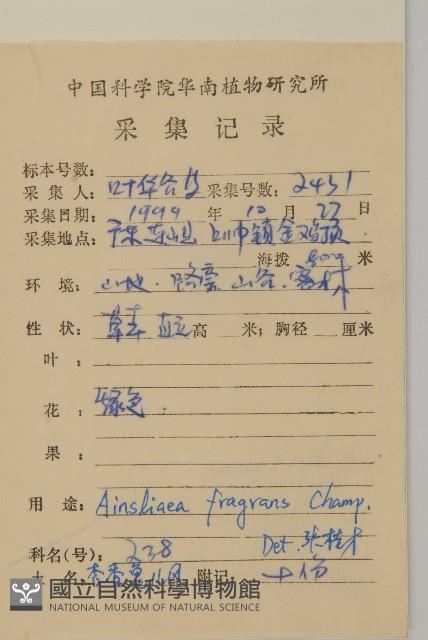 中国科学院华南植物研究所
采集记录
标本号数：
采集人：叶华谷 采集号数：2451
采集日期：1999年10月27日
采集地点：广东 镇金鸡顶．
海拨 800 米
环境：山地．路旁．山谷．密林
性状：草本 直立 高 米；胸径 厘米
叶：
花：绿色．
果：
用途：Ainsliaea fragrans Champ.
科名(号)：238 Det. 张桂才
土名：杏香兔儿风 附记：十份
國立自然科學博物館
NATIONAL MUSEUM OF NATURAL SCIENCE